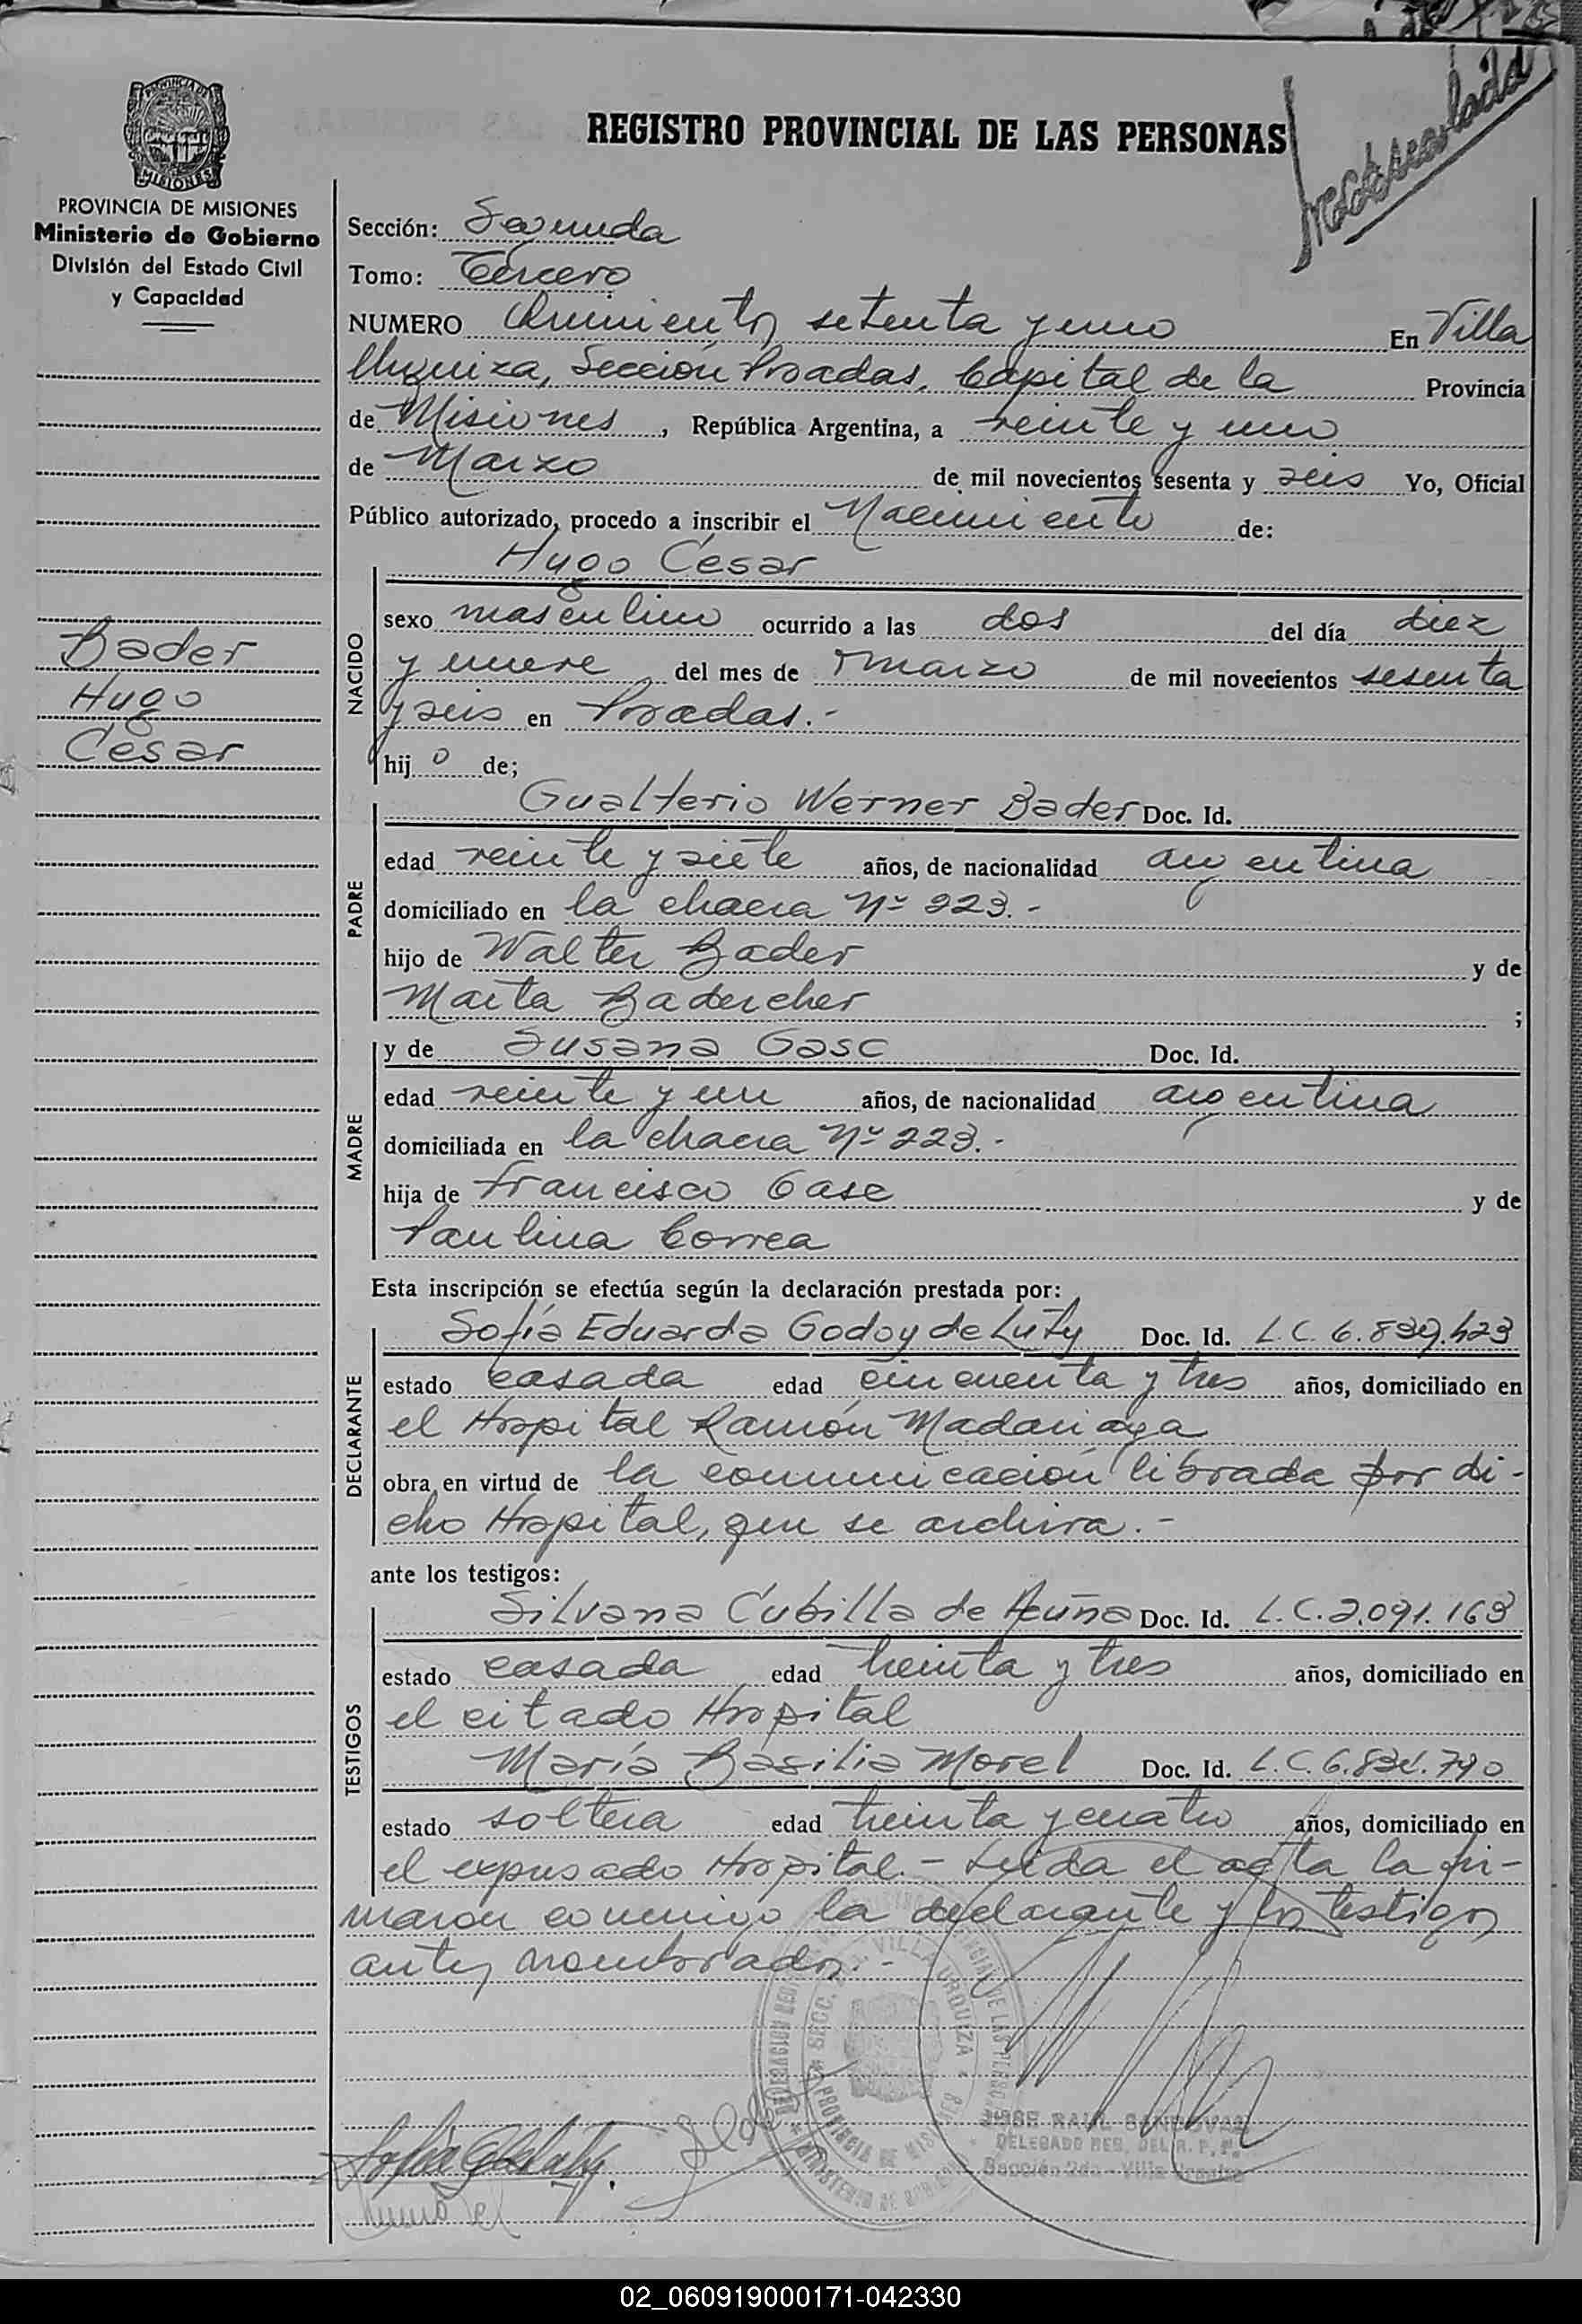 PROVINCIA DE MISIONES
MISIONES
PROVINCIA DE MISIONES
Ministerio de Gobierno
División del Estado Civil
y Capacidad
REGISTRO PROVINCIAL DE LAS PERSONAS
Sección: Segunda
Tomo: Tercero
NUMERO Quinientos setenta y uno En Villa
Urquiza, Sección Posadas, Capital de la Provincia
de Misiones, República Argentina, a veinte y uno
de Marzo de mil novecientos sesenta y seis Yo, Oficial
Público autorizado, procedo a inscribir el Nacimiento de:
Bader
Hugo
César
NACIDO
Hugo César
sexo masculino ocurrido a las dos del día diez
y nueve del mes de marzo de mil novecientos sesenta
y seis en Posadas.-
hijo de;
PADRE
Gualterio Werner Bader Doc. Id.
edad veinte y siete años, de nacionalidad argentina
domiciliado en la chacra Nº 223.-
hijo de Walter Bader y de
Marta Badercher ;
MADRE
y de Susana Gasc Doc. Id.
edad veinte y un años, de nacionalidad argentina
domiciliada en la chacra Nº 223.-
hija de Francisco Gasc y de
Paulina Correa
Esta inscripción se efectúa según la declaración prestada por:
DECLARANTE
Sofía Eduarda Godoy de Luty Doc. Id. L.C. 6.839.423
estado casada edad cincuenta y tres años, domiciliado en
el Hospital Ramón Madariaga
obra en virtud de la comunicación librada por di-
cho Hospital, que se archiva.-
ante los testigos:
TESTIGOS
Silvana Cubilla de Acuña Doc. Id. L.C. 2.091.163
estado casada edad treinta y tres años, domiciliado en
el citado Hospital
María Básilia Morel Doc. Id. L.C. 6.834.790
estado soltera edad treinta y cuatro años, domiciliado en
el expresado Hospital.- Leída el acta la fir-
maron conmigo la declarante y los testigos
antes nombrados.-
VILLA URQUIZA
PROVINCIA DE MISIONES
MINISTERIO DE GOBIERNO
JOSE RAUL SANDOVAL
DELEGADO REG. DEL R. P. P.
Sección 2da - Villa Urquiza
02_060919000171-042330